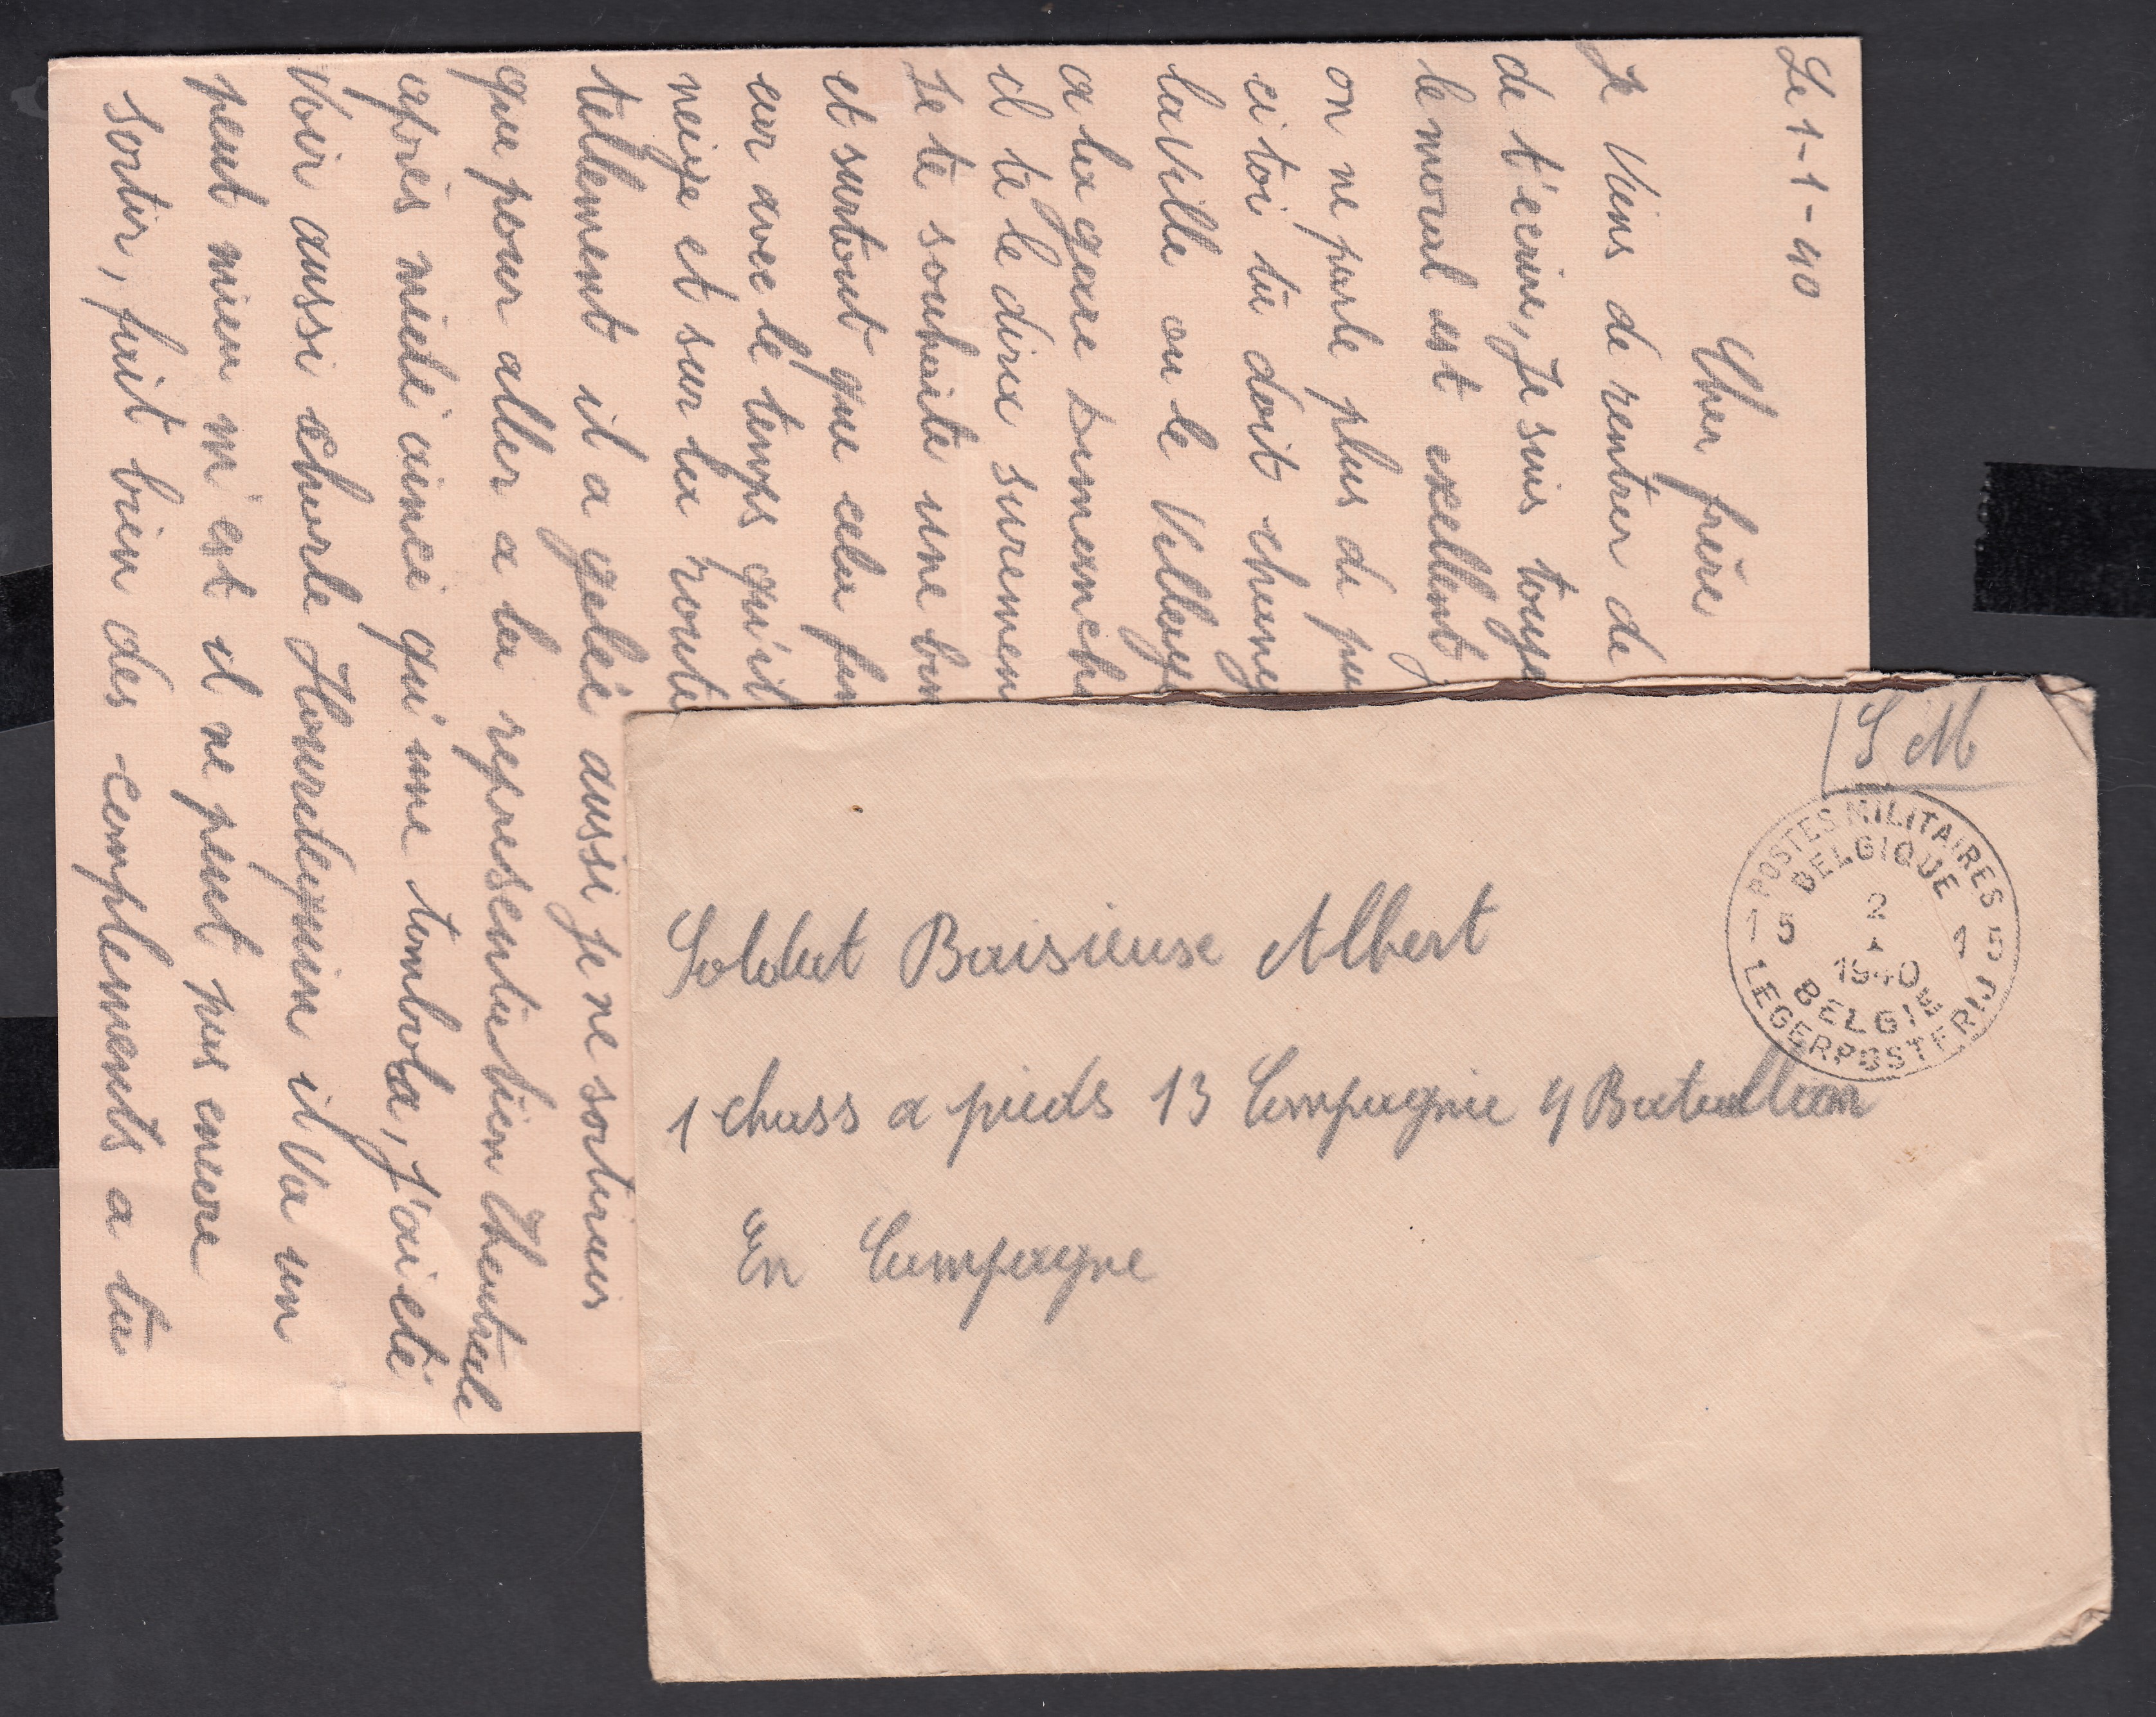 Le 1-1-40
Cher frère
Je viens de rentrer de
de t'ecrire, Je suis
le moral est exellent
on ne parle plus de
ci toi tu doit
la ville ou le
a la gare
il te le dira
Je te souhaite une
et surtout que cela
car avec le temps qu'il
neige et sur la route
tellement il a gelée aussi je ne sortirais
que pour aller a la representation theatrale
après midi ainci qu'une tombola, J'ai eté
voir aussi il va un
peut mieu m'est il ne peut pas encore
sortir, fait bien des complements a tu
S M
POSTES MILITAIRES
BELGIQUE
15 2 15
1
1940
BELGIE
LEGERPOSTERIJ
Soldat Baisieuse Albert
1 chass a pieds 13 Compagnie 4 Bataillon
En Campagne